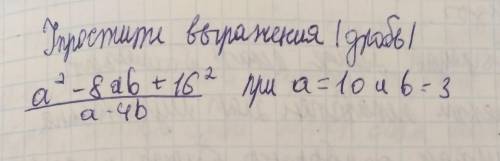 Упростите выражения (дробь)
a² - 8ab + 16² / a - 4b при a = 10 и b = 3